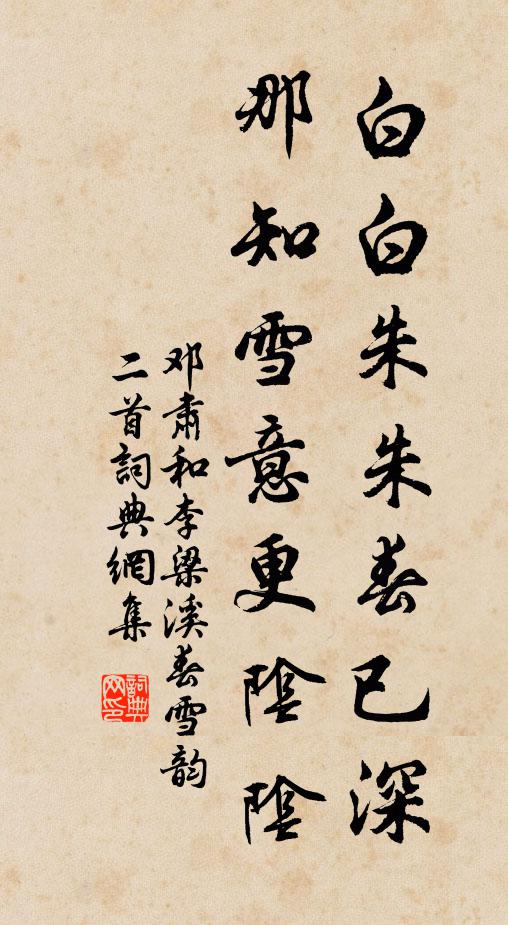 白白朱朱春已深
那知雪意更陰陰
邓肅和李梁溪春雪韵
二首詞典網集
詞典网印